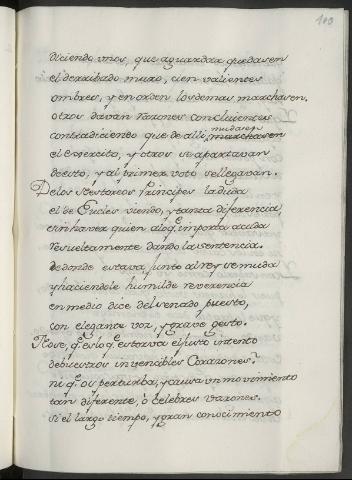 103
diciendo unos, que aguardar quedasen
el derribado muro, cien valientes
ombres, y en orden los demas marchasen.
otros davan raçones concluientes
contradiciendo que de alli marchasen
mudasen
el exercito, y otros se apartavan
de esto, y al primer voto se llegavan.
De los Nestoreos Principes la duda
el de Eucles viendo, y tanta diferencia,
sin haver quien a lo q̃ importa acuda
resueltamente dando la sentencia.
de donde estava junto al rey se muda
y haciendole humilde reverencia
en medio dice del senado puesto,
con elegante voz, y grave gesto.
q̃ es lo q̃ estorva el justo intento
de buestros invencibles Corazones?
ni q̃ os perturba, y causa un movimiento
tan diferente, ò celebres varones.
si el largo tiempo, y gran conocimiento